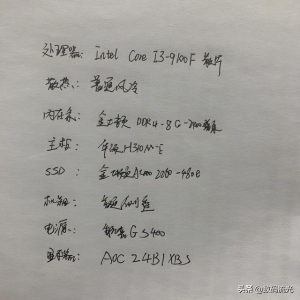 处理器: Intel Core I3-9100F 散片
散热: 普通风冷
内存条: 金士顿 DDR4-8G-2400
主板: 华硕H310M-E
SSD: 金士顿A2000
机箱: 普通
电源: GS400
显示器: AOC 24B1XHS
头条 @数码流光